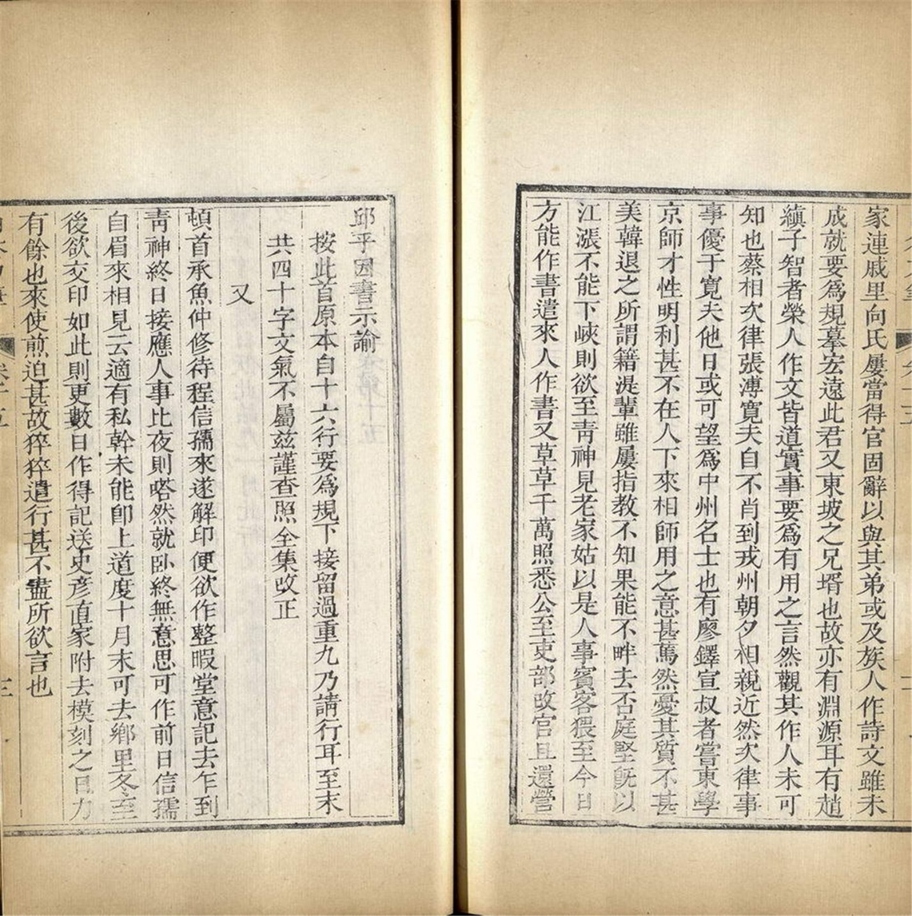 家連戚里向氏屢當得官固辭以與其弟或及族人作詩文雖未
成就要為規摹宏遠此君又東坡之兄壻也故亦有淵源耳有趙
縝子智者榮人作文皆道實事要為有用之言然觀其作人未可
知也蔡相次律張溥寬夫自不肖到戎州朝夕相親近然次律事
事優于寬夫他日或可望為中州名士也有廖鐸宣叔者嘗東學
京師才性明利甚不在人下來相師用之意甚篤然憂其質不甚
美韓退之所謂籍湜輩雖屢指教不知果能不畔去否庭堅旣以
江漲不能下峽則欲至靑神見老家姑以是人事賓客猥至今日
方能作書遣來人作書又草草千萬照悉公至吏部改官且還營
邱平因書示諭
按此首原本自十六行要為規下接留過重九乃請行耳至末
共四十字文氣不屬兹謹查照全集改正
又
頓首承魚仲修待程信孺來遂解印便欲作整暇堂意記去乍到
靑神終日接應人事比夜則嗒然就卧終無意思可作前日信孺
自眉來相見云適有私幹未能卽上道度十月末可去鄉里冬至
後欲交印如此則更數日作得記送史彥直家附去模刻之日力
有餘也來使煎迫甚故猝猝遣行甚不盡所欲言也